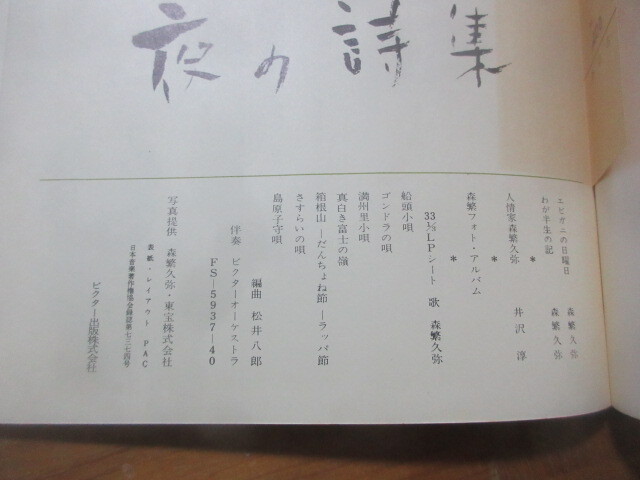 夜の詩集
エビガニの日曜日 森繁久弥
わが半生の記 森繁久弥
*
人情家森繁久弥 井沢淳
*
森繁フォト・アルバム
*
33⅓LPシート 歌 森繁久弥
船頭小唄
ゴンドラの唄
満州里小唄
真白き富士の嶺
箱根山―だんちょね節―ラッパ節
さすらいの唄
島原子守唄
編曲 松井八郎
伴奏 ビクターオーケストラ
FS―5937―40
写真提供 森繁久弥・東宝株式会社
表紙・レイアウト PAC
日本音楽著作権協会録認第七三七四号
ビクター出版株式会社